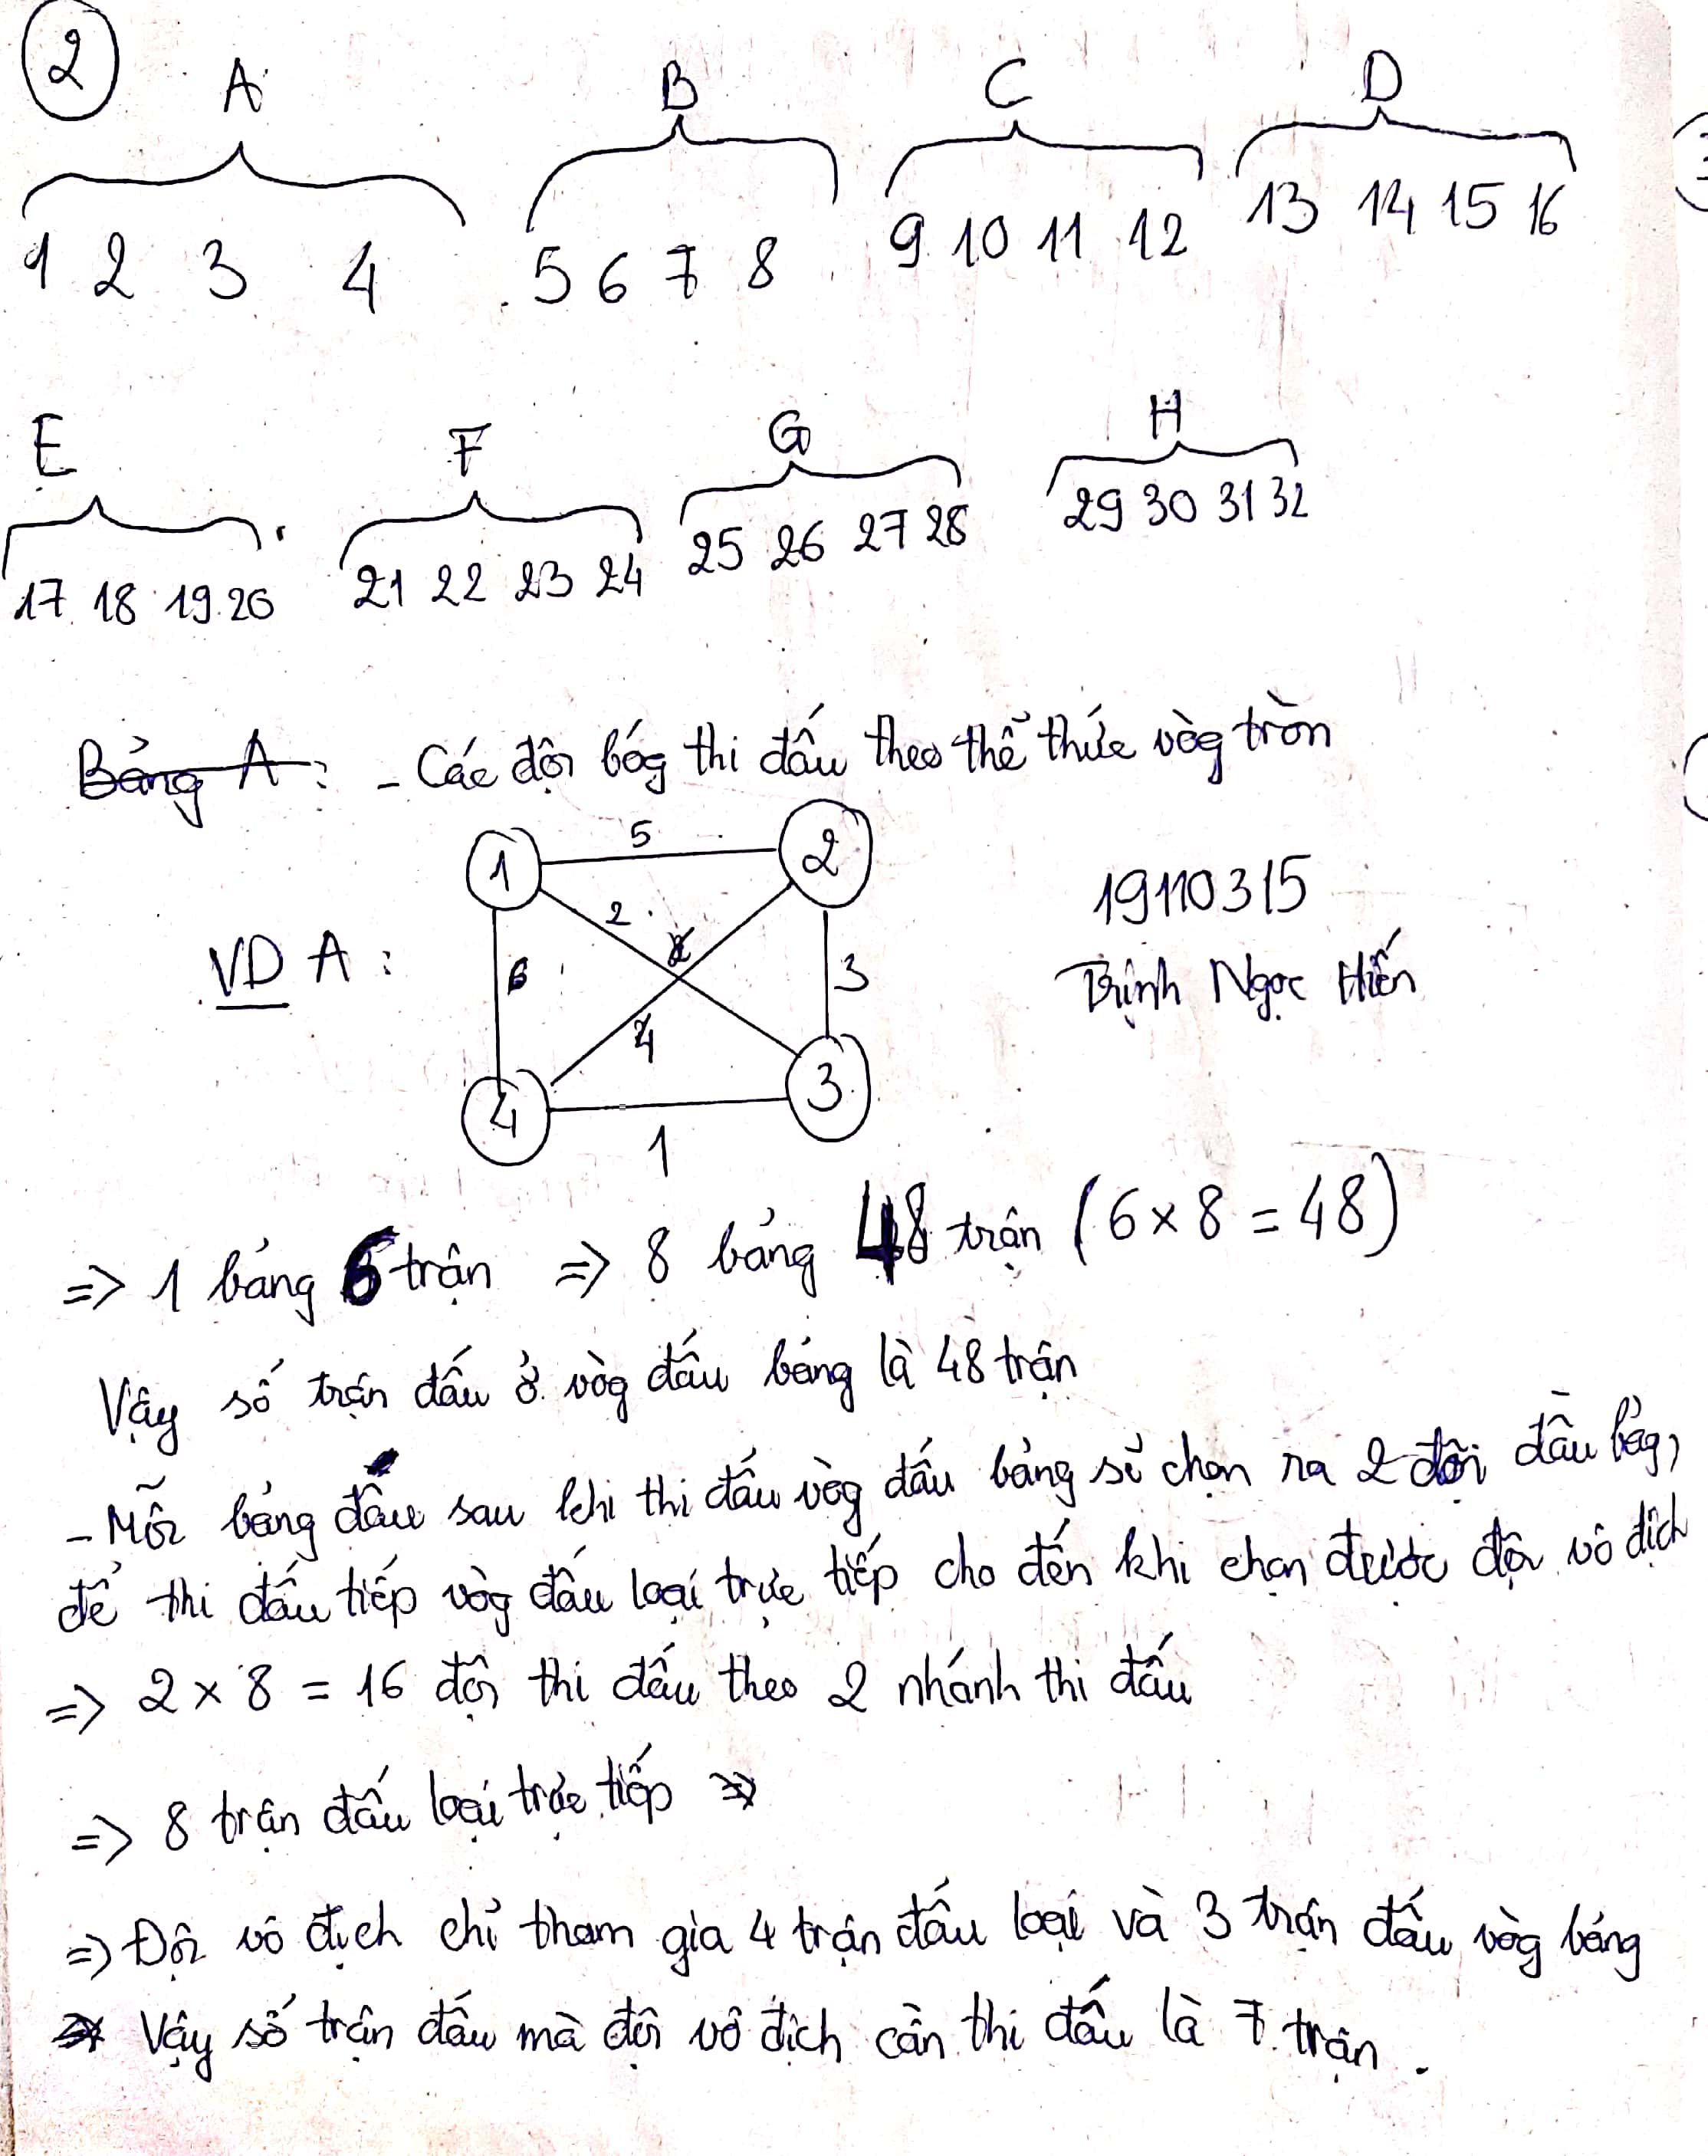 2
A B C D
1 2 3 4 5 6 7 8 9 10 11 12 13 14 15 16
E F G H
17 18 19 20 21 22 23 24 25 26 27 28 29 30 31 32
Bảng A: - Các đội bóg thi đấu theo thể thức vòg tròn
1 5 2
2
19110315
VD A: 6 3
Trịnh Ngọc Hiến
4
4 3
1
=> 1 bảng 6 trận => 8 bảng 48 trận (6 x 8 = 48)
Vậy số trận đấu ở vòg đấu bảng là 48 trận
- Mỗi bảng đấu sau khi thi đấu vòg đấu bảng sẽ chọn ra 2 đội đầu bảg,
để thi đấu tiếp vòg đấu loại trực tiếp cho đến khi chọn được đội vô địch
=> 2 x 8 = 16 đội thi đấu theo 2 nhánh thi đấu
=> 8 trận đấu loại trực tiếp
=> Đội vô địch chỉ tham gia 4 trận đấu loại và 3 trận đấu vòg bảng
Vậy số trận đấu mà đội vô địch cần thi đấu là 7 trận.